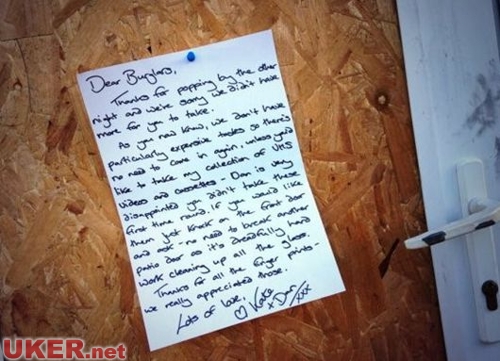 Dear Burglars,
Thanks for popping by the other
night and we're sorry we didn't have
more for you to take.
As you now know, we don't have
particularly expensive tastes so there's
no need to come in again, unless you'd
like to take my collection of VHS
videos and cassettes - Dan is very
disappointed you didn't take these
first time round. If you would like
them just knock on the front door
and ask - no need to break another
patio door as it's dreadfully hard
work cleaning up all the glass.
Thanks for all the finger prints -
we really appreciated those.
Lots of love,
♡ Katie
x Dan xxx
UKER.net